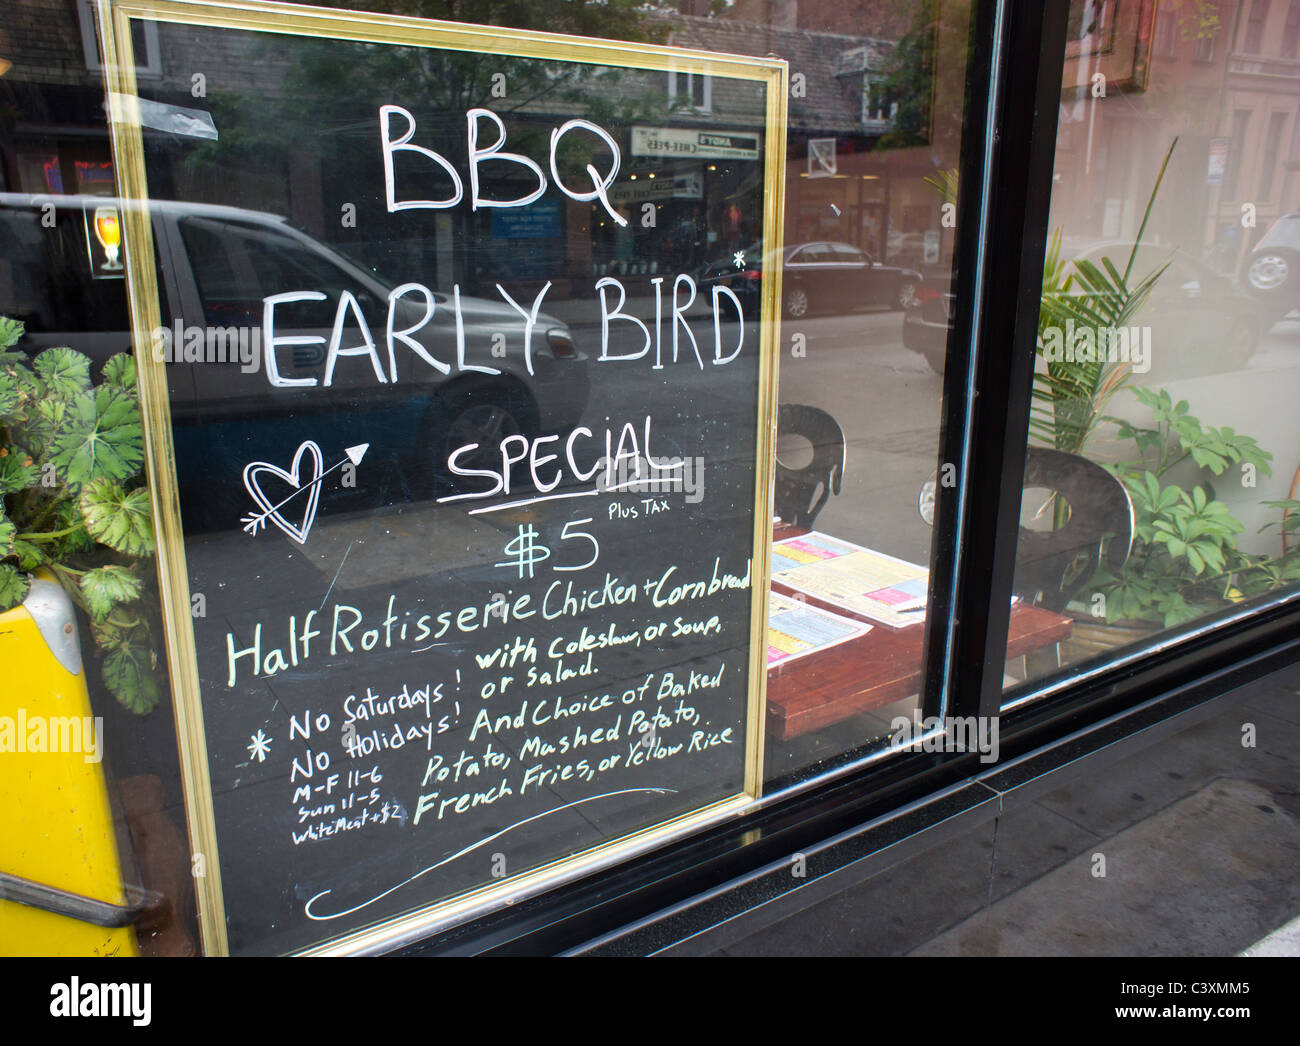 BBQ
EARLY BIRD*
SPECIAL
$5 Plus TAX
Half Rotisserie Chicken + Cornbread
with Coleslaw, or Soup,
or Salad.
And Choice of Baked
Potato, Mashed Potato,
French Fries, or Yellow Rice
* No Saturdays!
No Holidays!
M-F 11-6
Sun 11-5
White Meat +$2
ANDY'S
CHEE-PEES
alamy
Image ID: C3XMM5
www.alamy.com